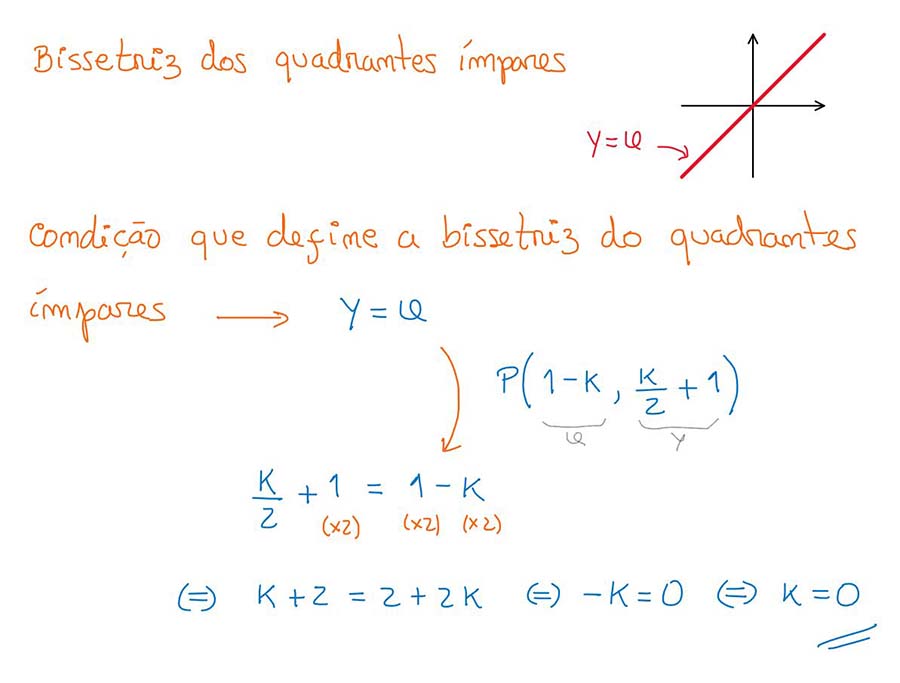 Bissetriz dos quadrantes ímpares
y = x
Condição que define a bissetriz do quadrantes
ímpares ⟶ y = x
P(1-K, K/2 + 1)
x y
K/2 + 1 = 1 - K
(x2) (x2) (x2)
(=) K + 2 = 2 + 2K (=) -K = 0 (=) K = 0